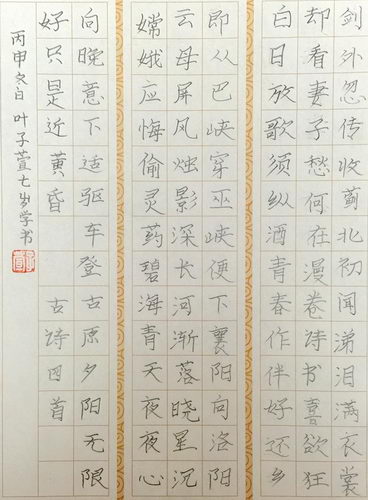 剑外忽传收蓟北初闻涕泪满衣裳
却看妻子愁何在漫卷诗书喜欲狂
白日放歌须纵酒青春作伴好还乡
即从巴峡穿巫峡便下襄阳向洛阳
云母屏风烛影深长河渐落晓星沉
嫦娥应悔偷灵药碧海青天夜夜心
向晚意下适驱车登古原夕阳无限
好只是近黄昏 古诗四首
丙申冬日 叶子萱七岁学书